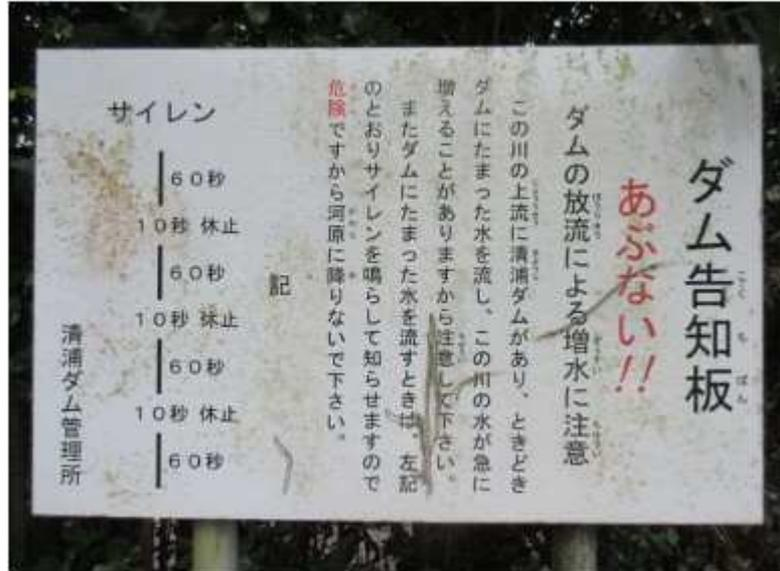 ダム告知板
あぶない!!
ダムの放流による増水に注意
この川の上流に清浦ダムがあり、ときどき
ダムにたまった水を流し、この川の水が急に
増えることがありますから注意して下さい。
またダムにたまった水を流すときは、左記
のとおりサイレンを鳴らして知らせますので
危険ですから河原に降りないで下さい。
記
サイレン
60秒
10秒 休止
60秒
10秒 休止
60秒
10秒 休止
60秒
清浦ダム管理所